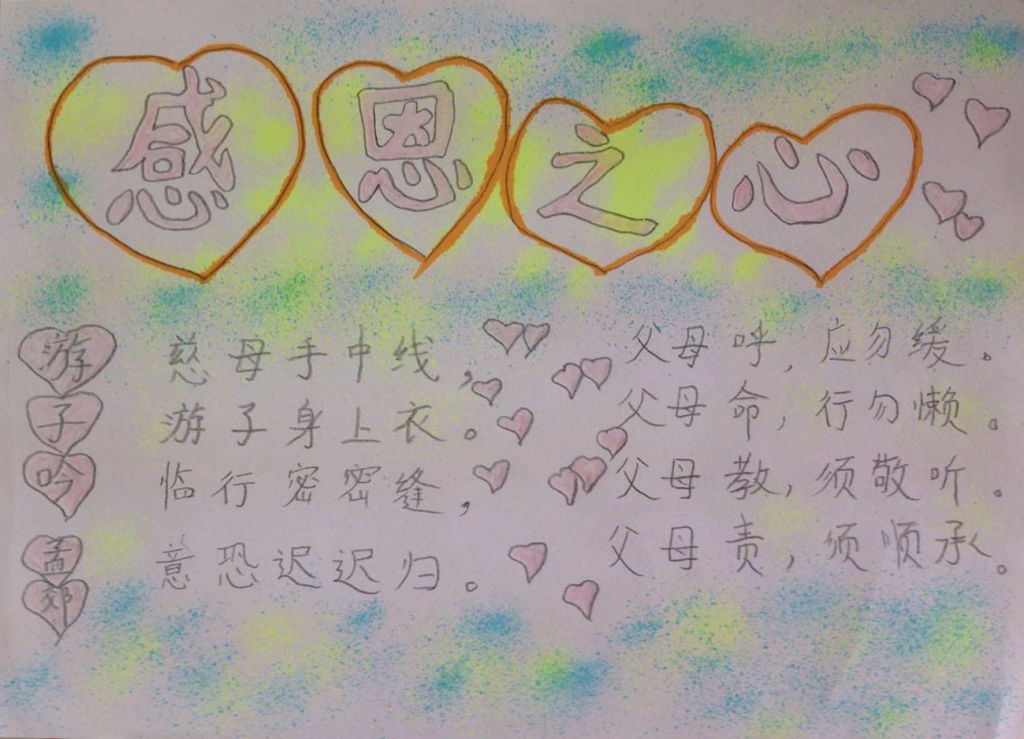 感恩之心
游子吟
孟郊
慈母手中线，
游子身上衣。
临行密密缝，
意恐迟迟归。
父母呼，应勿缓。
父母命，行勿懒。
父母教，须敬听。
父母责，须顺承。